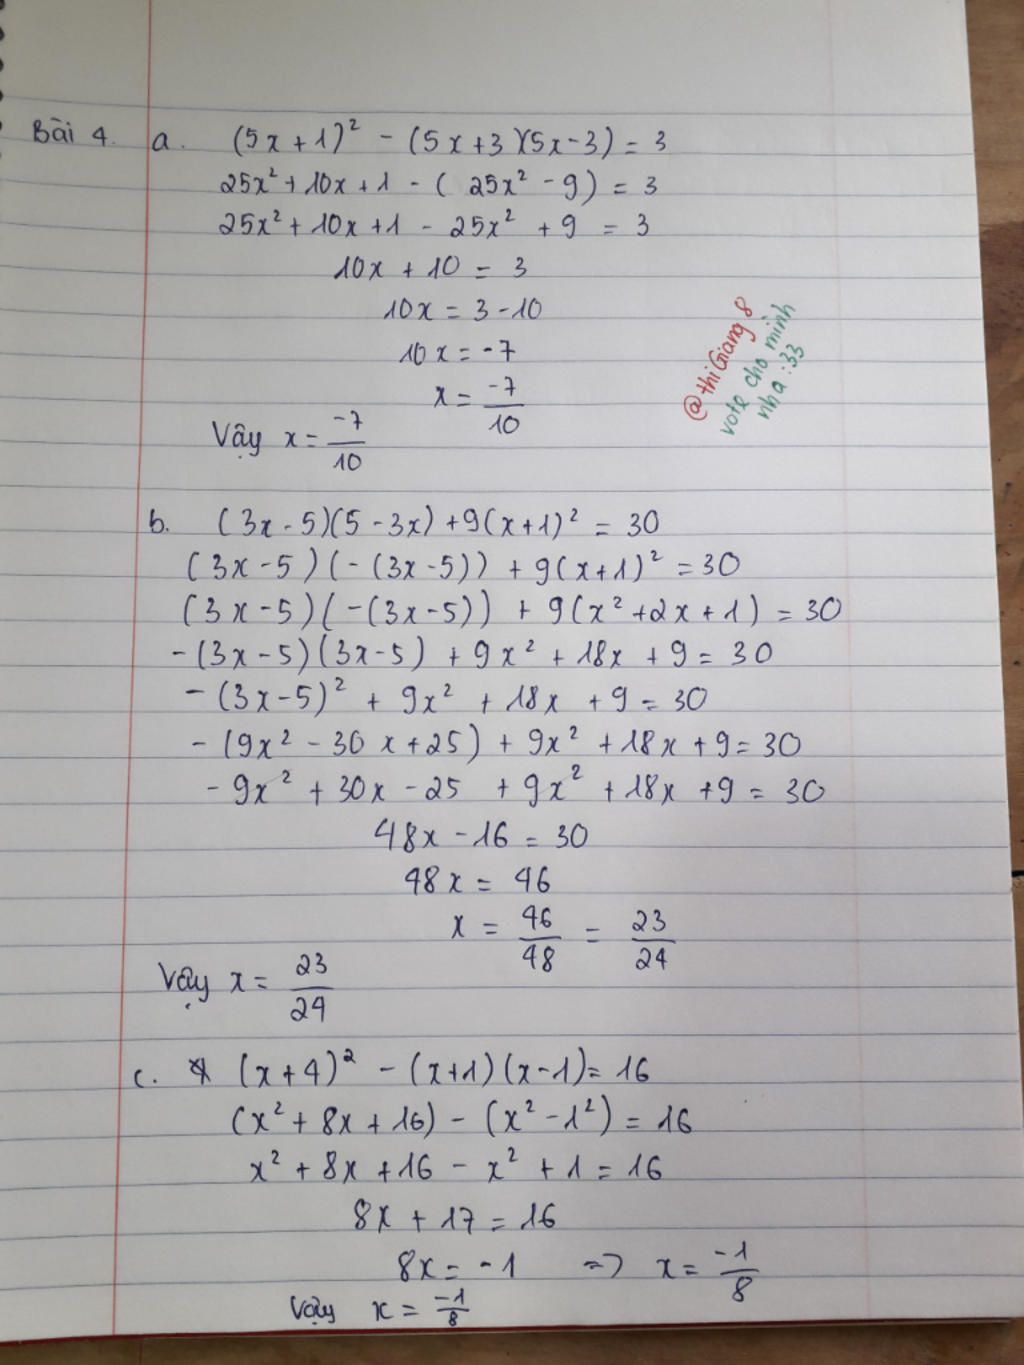 Bài 4. a. (5x+1)² - (5x+3)(5x-3) = 3
25x² + 10x + 1 - ( 25x² - 9) = 3
25x² + 10x + 1 - 25x² + 9 = 3
10x + 10 = 3
10x = 3 - 10
10x = -7
x = -7/10
Vậy x = -7/10
@thiGiang8
vote cho mình
nha :33
b. (3x-5)(5-3x) + 9(x+1)² = 30
(3x-5)(-(3x-5)) + 9(x+1)² = 30
(3x-5)(-(3x-5)) + 9(x²+2x+1) = 30
-(3x-5)(3x-5) + 9x² + 18x + 9 = 30
-(3x-5)² + 9x² + 18x + 9 = 30
-(9x² - 30x + 25) + 9x² + 18x + 9 = 30
-9x² + 30x - 25 + 9x² + 18x + 9 = 30
48x - 16 = 30
48x = 46
x = 46/48 = 23/24
Vậy x = 23/24
c. (x+4)² - (x+1)(x-1) = 16
(x² + 8x + 16) - (x² - 1²) = 16
x² + 8x + 16 - x² + 1 = 16
8x + 17 = 16
8x = -1 => x = -1/8
Vậy x = -1/8